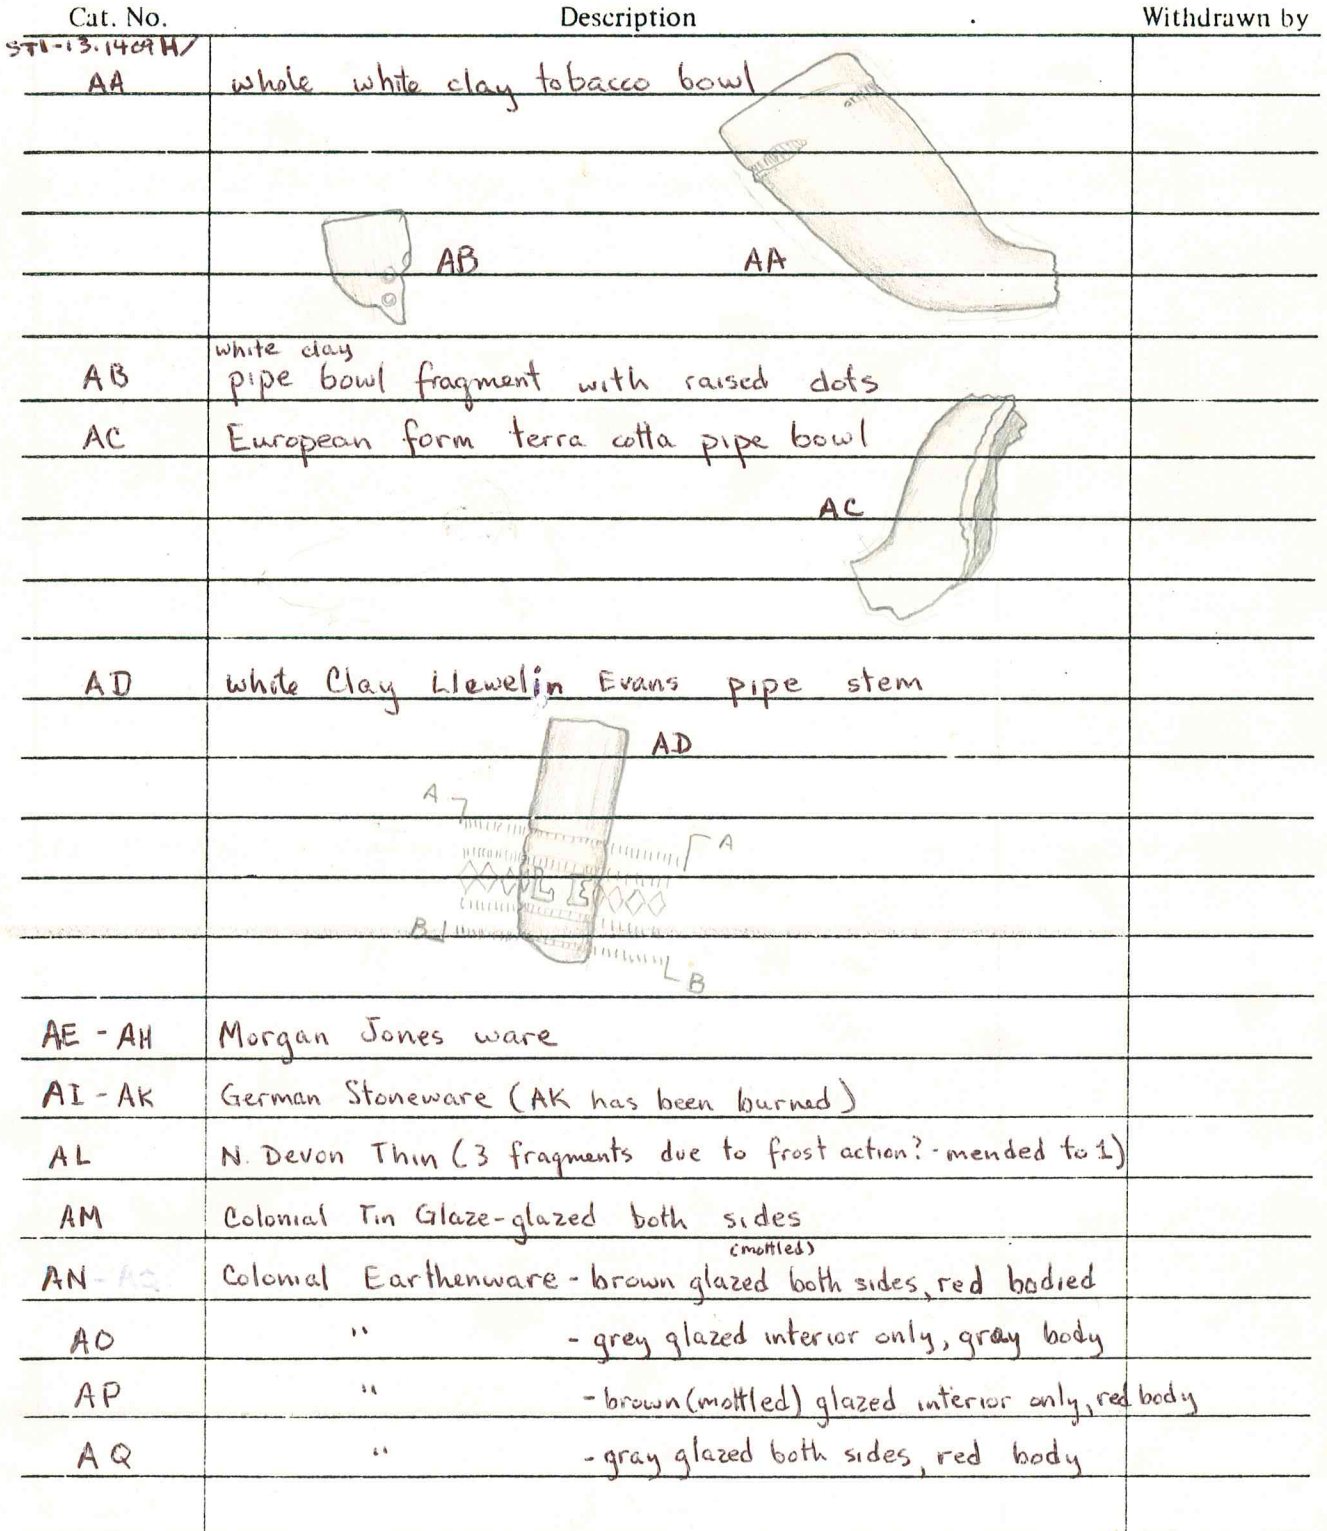 Cat. No. Description Withdrawn by
ST1-13.1409H/
AA whole white clay tobacco bowl
AB AA
white clay
AB pipe bowl fragment with raised dots
AC European form terra cotta pipe bowl
AC
AD white Clay Llewelin Evans pipe stem
AD
A
A
L E
B
B
AE - AH Morgan Jones ware
AI - AK German Stoneware (AK has been burned)
AL N. Devon Thin (3 fragments due to frost action? - mended to 1)
AM Colonial Tin Glaze - glazed both sides
(mottled)
AN Colonial Earthenware - brown glazed both sides, red bodied
AO " - grey glazed interior only, gray body
AP " - brown (mottled) glazed interior only, red body
AQ " - gray glazed both sides, red body